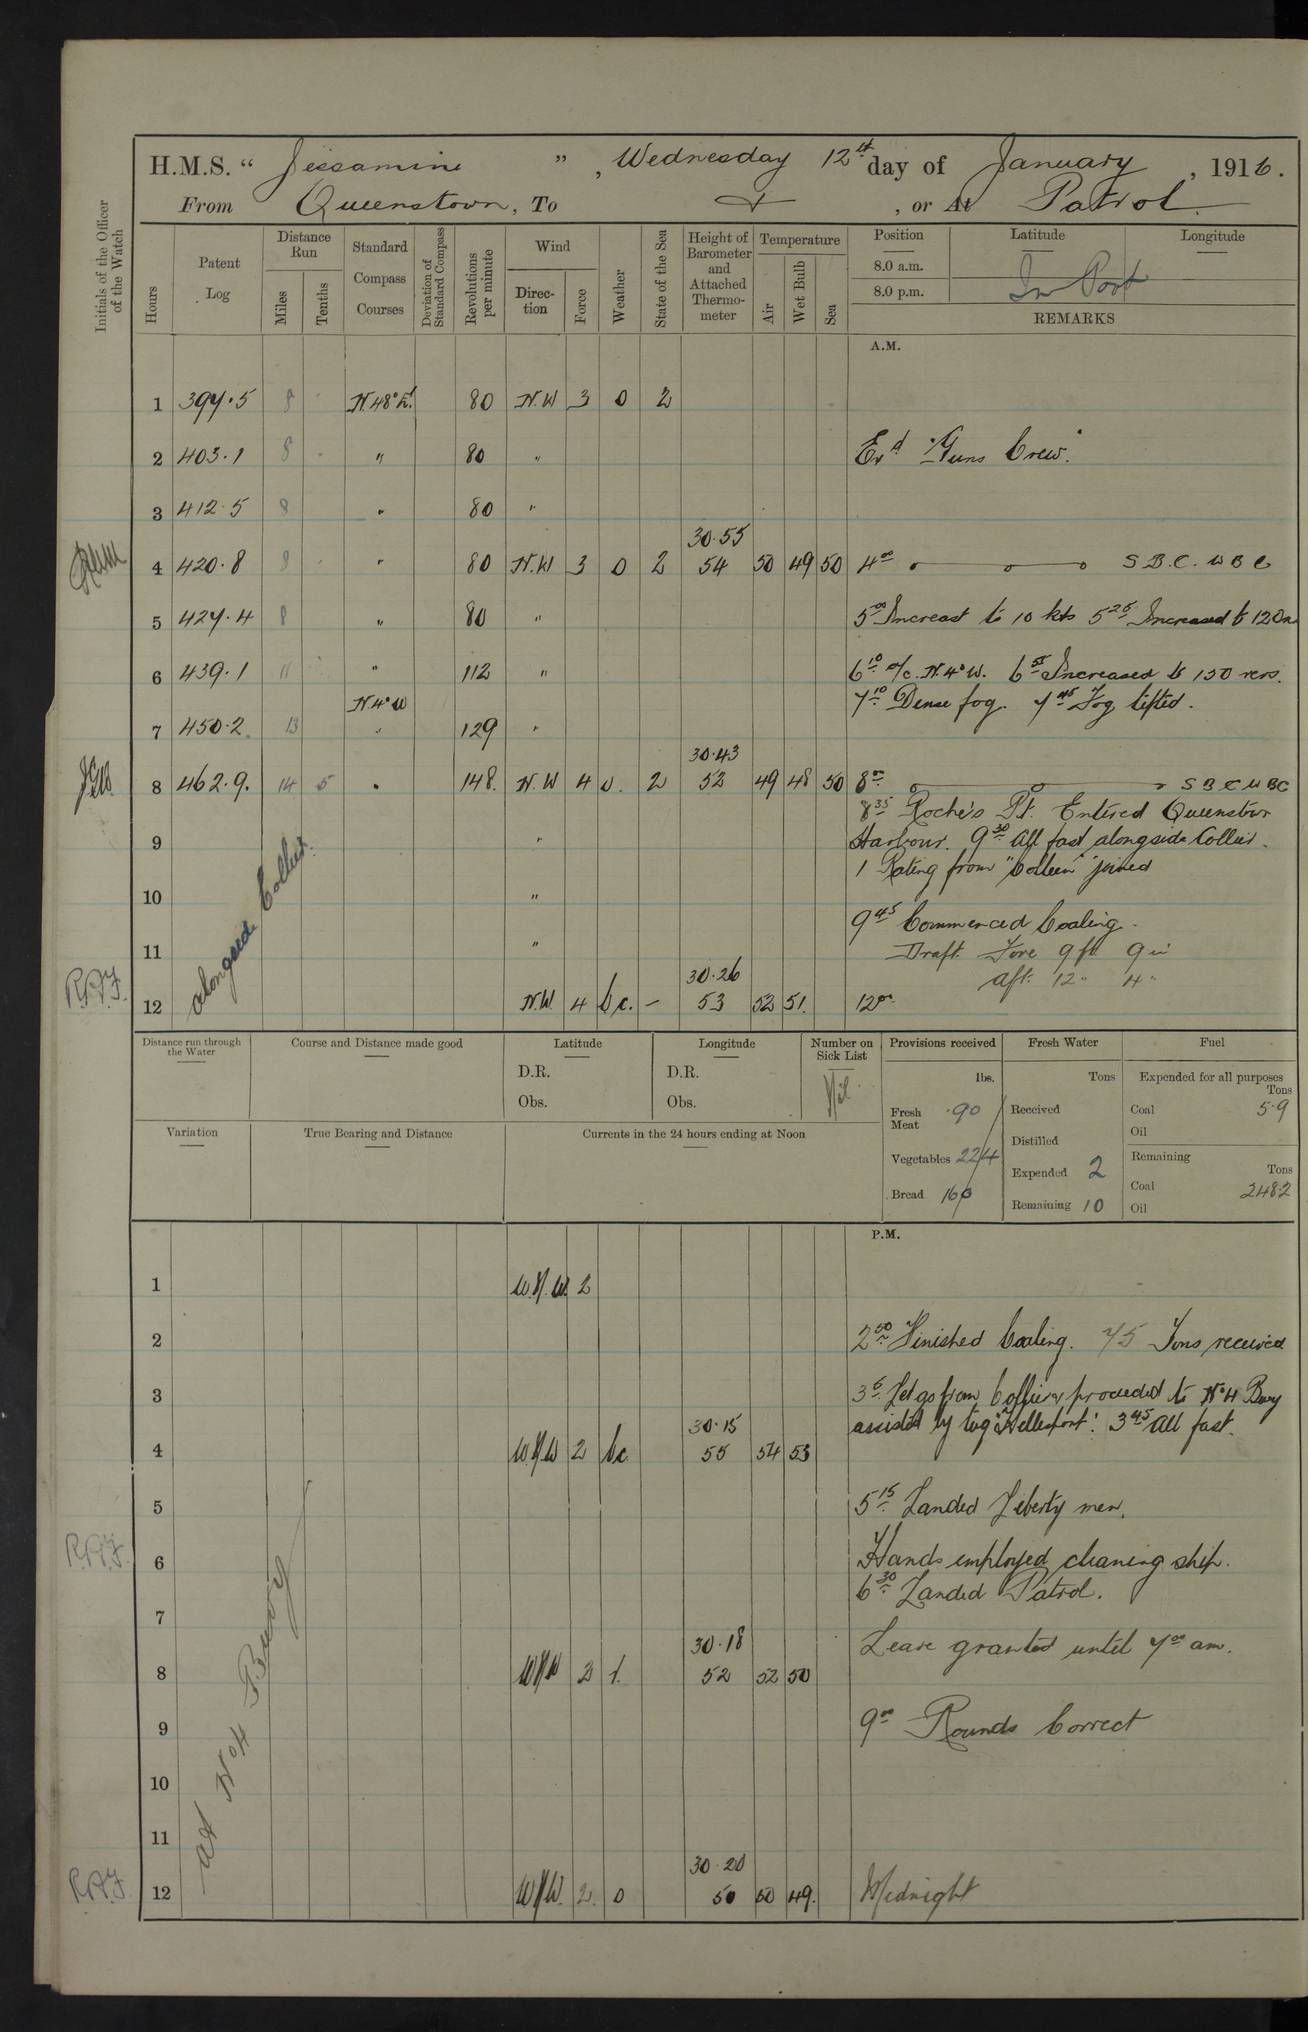 H.M.S. " Jessamine ", Wednesday 12th day of January, 1916.
From Queenstown, To & , or At Patrol
Initials of the Officer of the Watch
Hours
Patent Log
Distance Run
Miles
Tenths
Standard Compass Courses
Deviation of Standard Compass
Revolutions per minute
Wind
Direction
Force
Weather
State of the Sea
Height of Barometer and Attached Thermometer
Temperature
Air
Wet Bulb
Sea
Position
Latitude
Longitude
8.0 a.m.
8.0 p.m.
In Port
REMARKS
A.M.
1 397.5 8 N.48°E. 80 N.W 3 o 2
2 403.1 8 " 80 " Exd "Guns Crew".
3 412.5 8 " 80 "
30.55
4 420.8 8 " 80 N.W 3 o 2 54 50 49 50 4.00 S.B.C. W B C
5 427.4 8 " 80 " 5.00 Increast to 10 kts 5.25 Increased to 120
6 439.1 11 " 112 " 6.10 a/c. N.4°W. 6.55 Increased to 150 revs.
N.4°W 7.10 Dense fog. 7.45 Fog lifted.
7 450.2 13 " 129 "
30.43
8 462.9. 14 5 " 148. N.W 4 o. 2 52 49 48 50 8.00 S B C W BC
8.35 Roche's Pt. Entered Queenstown
9 " Harbour. 9.30 All fast alongside Collier.
1 Rating from "Colleen" joined
10 "
9.45 Commenced Coaling.
11 " Draft Fore 9 ft 9 in
30.26 Aft. 12 " 4 "
12 N.W. 4 b.c. - 53 52 51. 12.00
alongside Collier.
R.A.F.
Distance run through the Water
Course and Distance made good
Latitude
D.R.
Obs.
Longitude
D.R.
Obs.
Number on Sick List
Nil.
Provisions received
lbs.
Fresh Meat 90
Vegetables 224
Bread 160
Fresh Water
Tons
Received
Distilled
Expended 2
Remaining 10
Fuel
Expended for all purposes
Tons
Coal 5.9
Oil
Remaining
Tons
Coal 248.2
Oil
Variation
True Bearing and Distance
Currents in the 24 hours ending at Noon
P.M.
1 W.N.W. 2
2 2.50 Finished Coaling. 75 Tons received
3 3.5 Let go from Collier & proceeded to No 4 Buoy
30.15 assisted by tug "Hellespont". 3.45 All fast.
4 W.N.W 2 bc 55 54 53
5 5.15 Landed Liberty men.
6 Hands employed cleaning ship.
6.30 Landed Patrol.
R.A.F.
7
30.18 Leave granted until 7.00 am.
8 WNW 2 52 52 50
9 9.00 Rounds Correct
10
11
30.20
12 WNW. 2. o 50 50 49. Midnight
at No 4 Buoy
R.A.F.